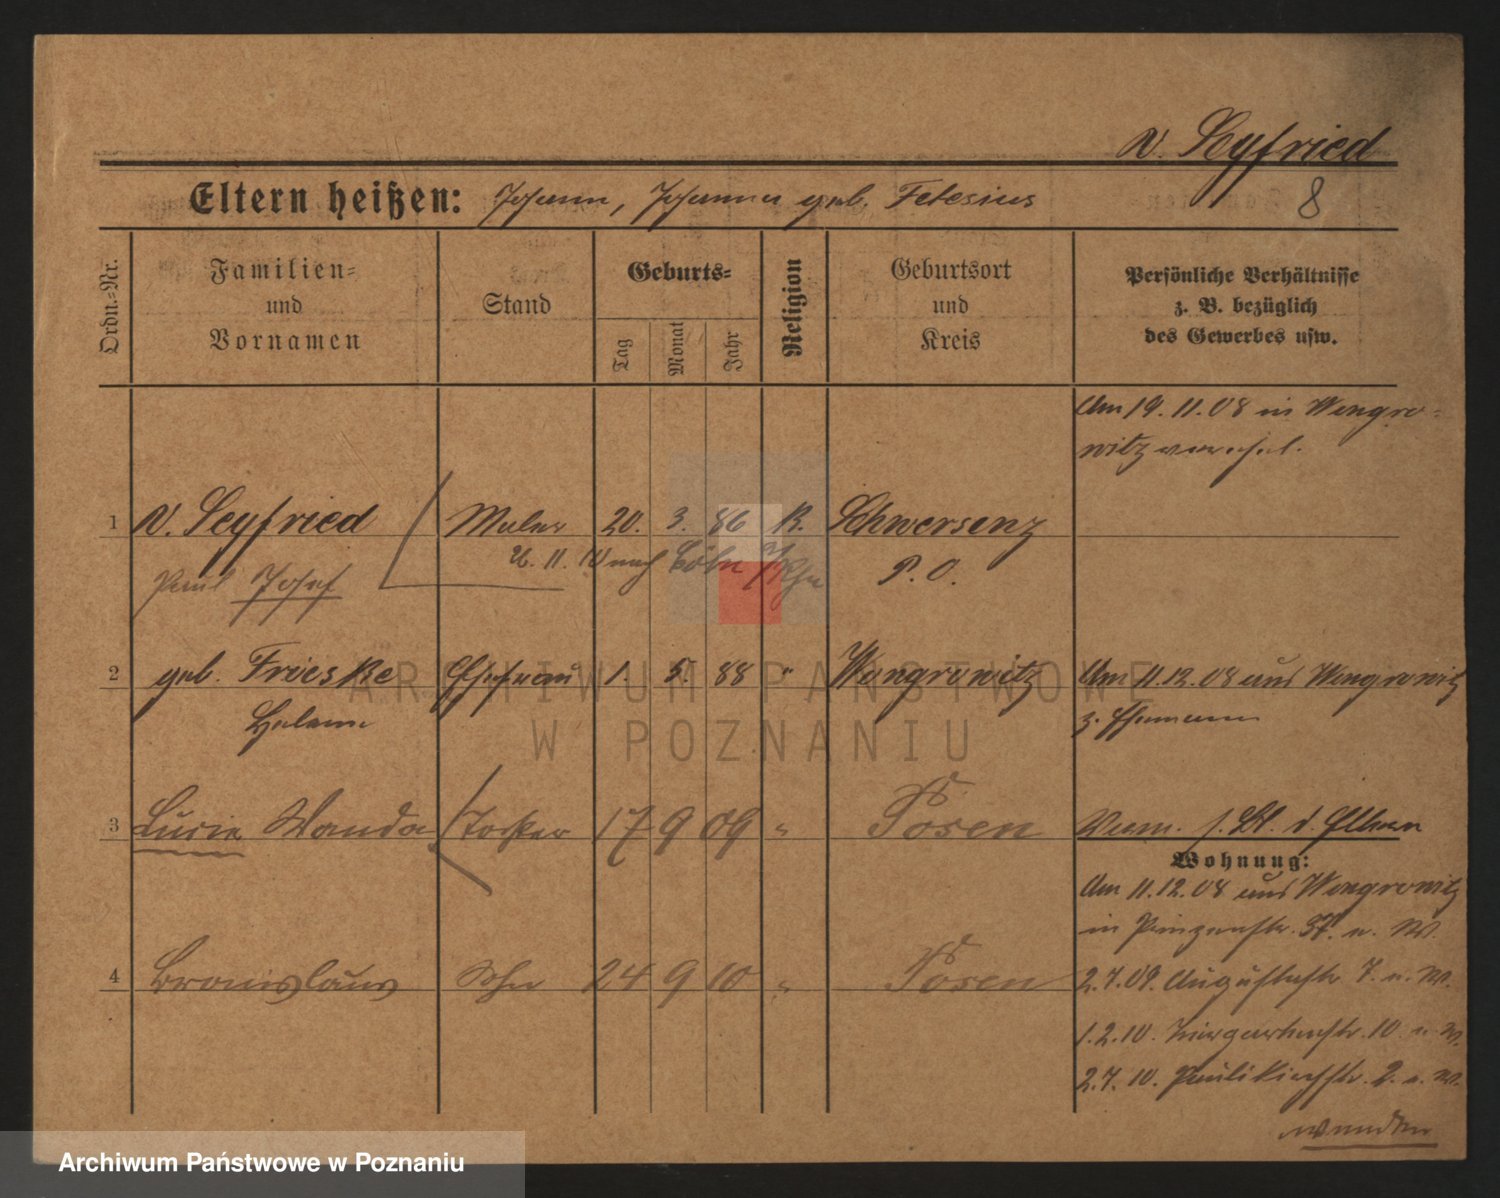 v. Seyfried
Eltern heißen: Johann, Johanna geb. Fetesius
8
Ordn.-Nr.
Familien- und Vornamen
Stand
Geburts-
Tag
Monat
Jahr
Religion
Geburtsort und Kreis
Persönliche Verhältnisse
z. B. bezüglich
des Gewerbes usw.
Am 19. 11. 08 in Wongro-
witz verehel.
1 v. Seyfried Maler 20. 3. 86 K. Schwersenz
Paul Josef 11. 10 nach Cöln a/Rhn P. O.
2 geb. Frieske Ehefrau 1. 5. 88 " Wongrowitz Am 11.12.08 aus Wongrowitz
Helene z. Ehemann
3 Lucie Wanda Tochter 17 9 09 " Posen Verm. s. Bl. d. Eltern
Wohnung:
Am 11.12.08 aus Wongrowitz
in Prinzenstr. 37. n. W.
4 Bronislaus Sohn 24 9 10 " Posen 2.7.09. Augustastr 7. n. W.
1.2.10. Tiergartenstr. 10 n. W.
2.7.10. Paulikirchstr. 2. n. W.
ARCHIWUM PAŃSTWOWE
W POZNANIU
Archiwum Państwowe w Poznaniu